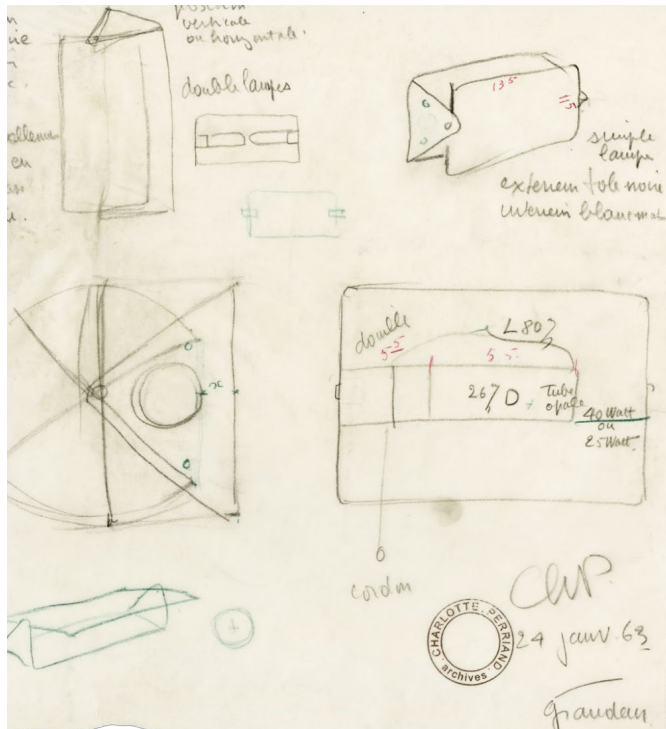 position
verticale
ou horizontale.
double lampes
en
135
simple
lampe
exterieur tole noire
interieur blanc mat
douille
55
L 80
55
267 D
Tube
opale
40 Watt
ou
25 Watt
x
cordon
ChP.
CHARLOTTE PERRIAND
archives
24 janv. 63
grandeur